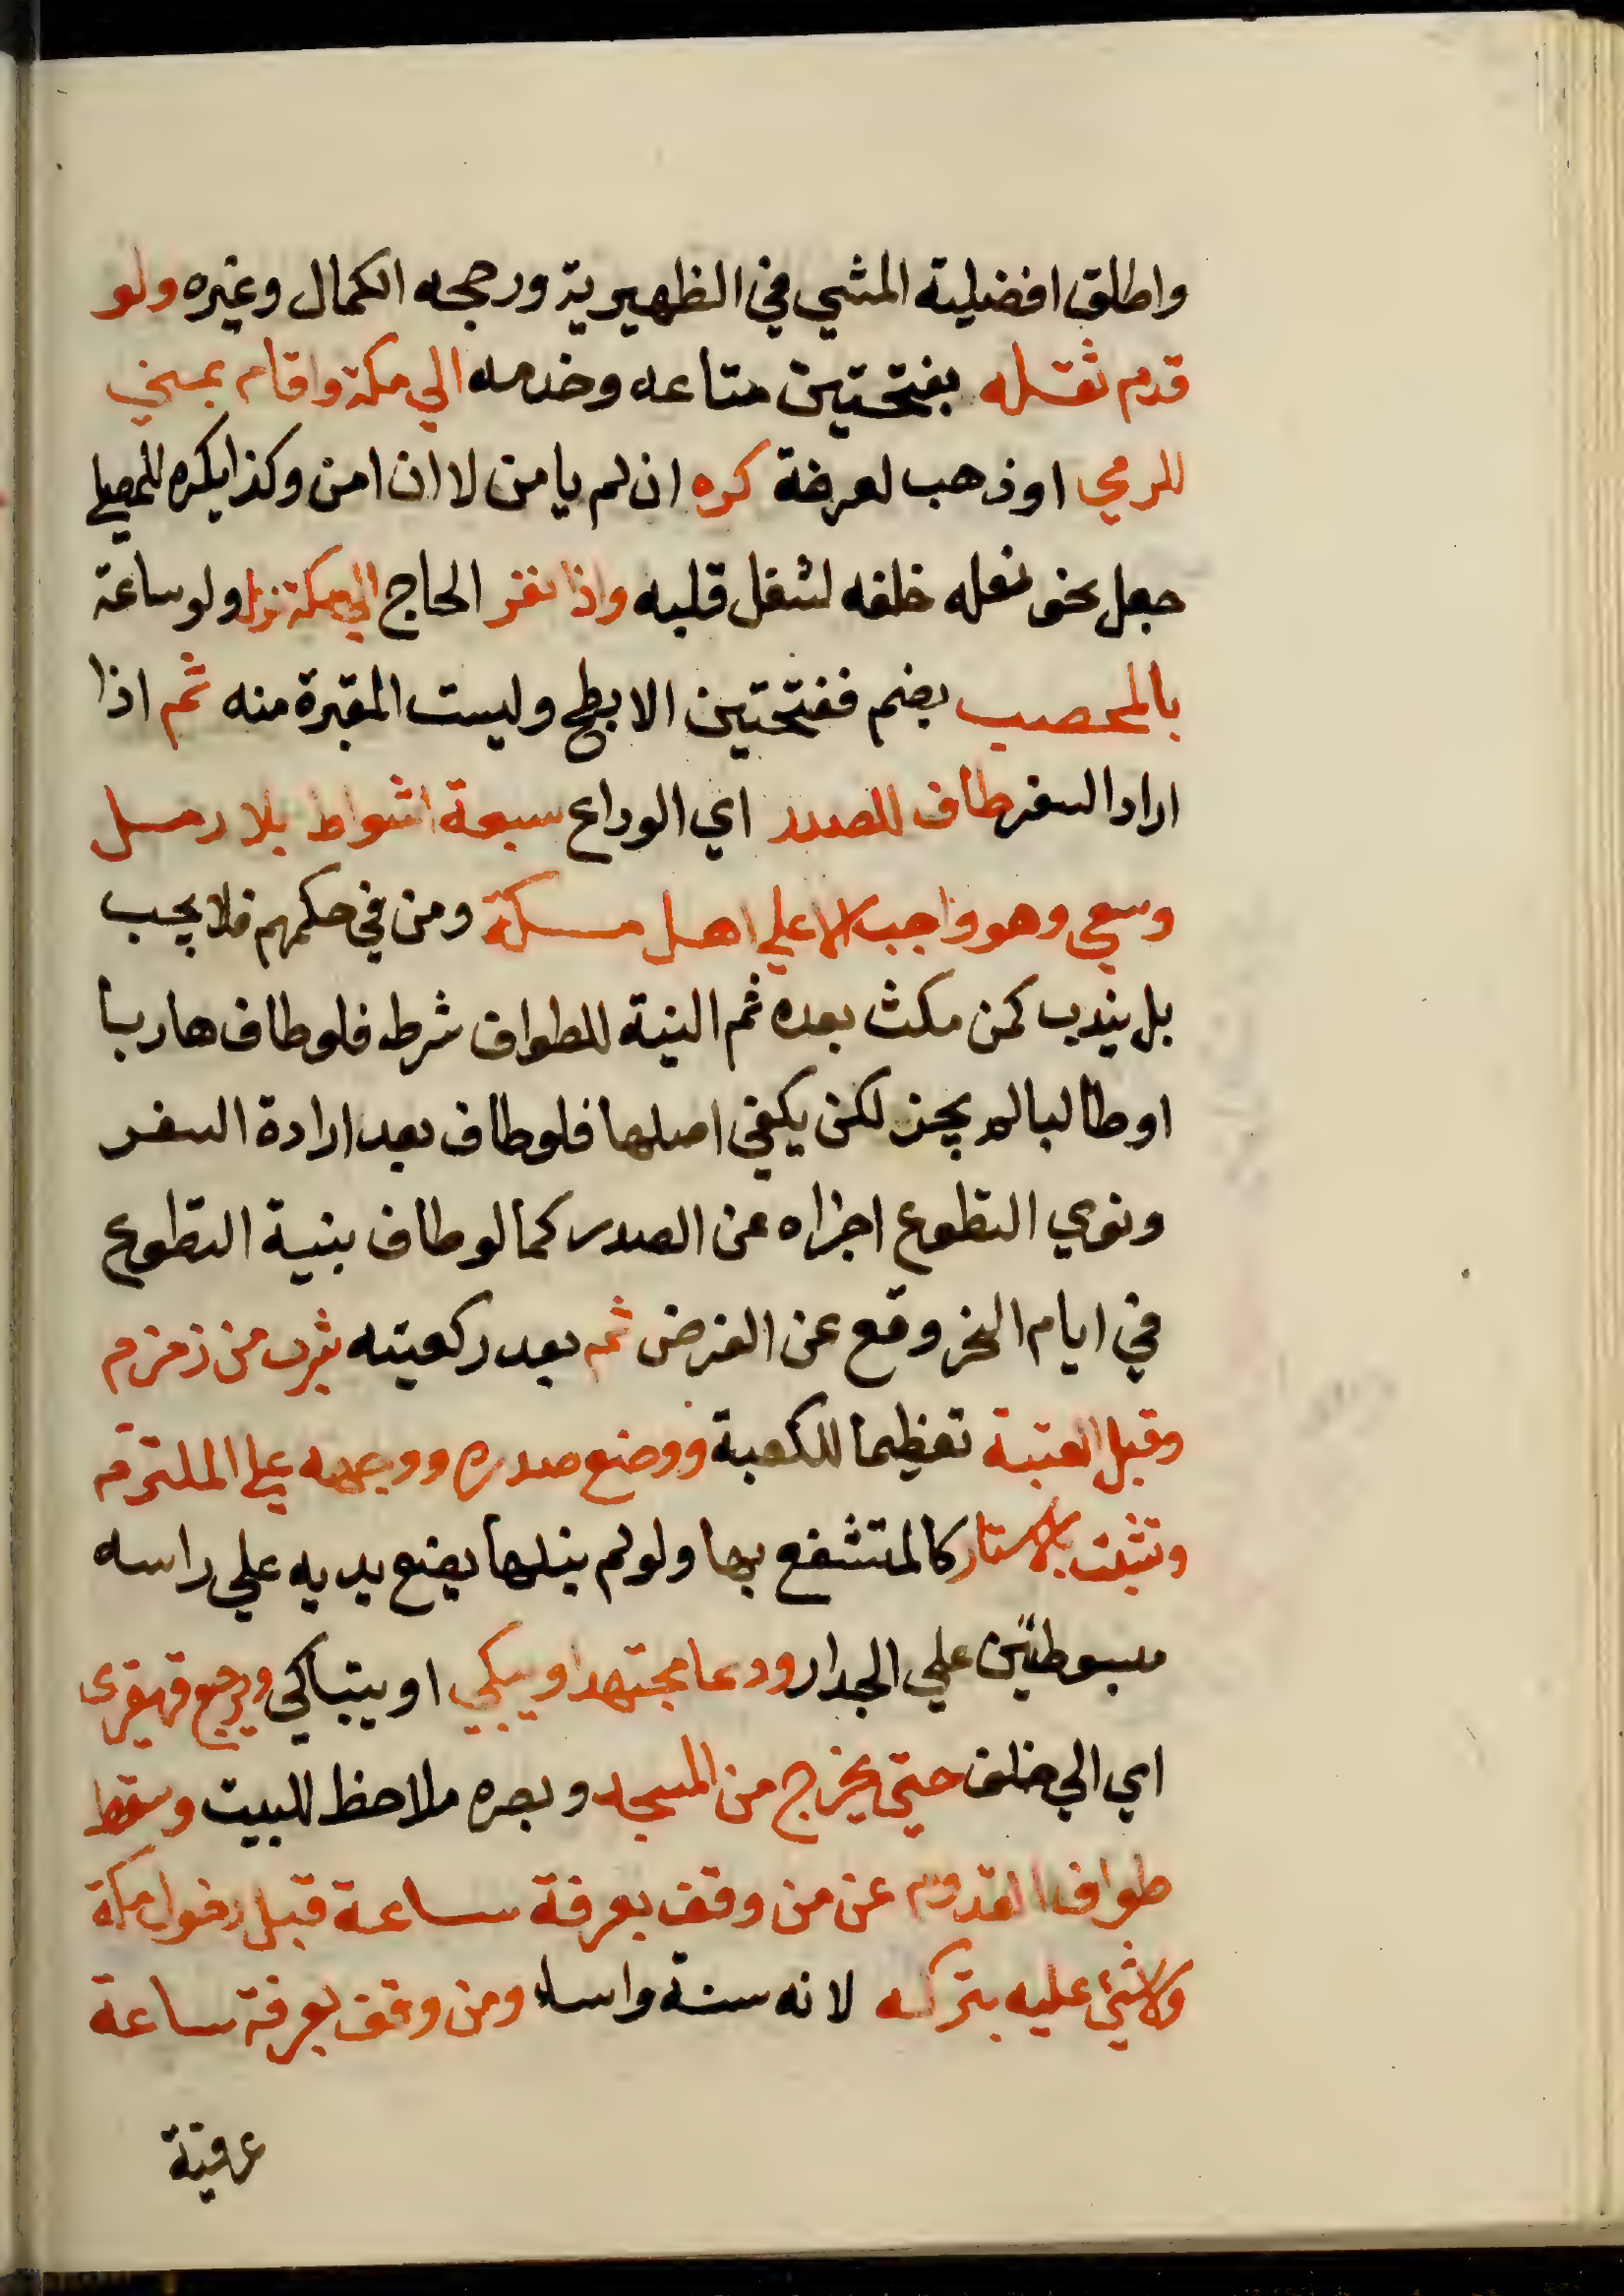 واطلق افضلية المشي في الظهيرية ورجحه الكمال وغيره ولو
قدم ثقله بفتحتين متاعه وخدمه الي مكة واقام بمني
للرمي او ذهب لعرفة كره ان لم يامن لا ان امن وكذا يكره للمصلي
جعل نحو نعله خلفه لشغل قلبه واذا نفر الحاج الي مكة نزل ولو ساعة
بالمحصب بضم ففتحتين الابطح وليست المقبرة منه ثم اذا
اراد السفر طاف للصدر اي الوداع سبعة اشواط بلا رمل
وسعي وهو واجب الا علي اهل مكة ومن في حكمهم فلا يجب
بل يندب كمن مكث بعده ثم النية للطواف شرط فلو طاف هاربا
او طالبا لم يجز لكن يكفي اصلها فلو طاف بعد ارادة السفر
ونوي التطوع اجزاه عن الصدر كما لو طاف بنية التطوع
في ايام النحر وقع عن الفرض ثم بعد ركعتيه شرب من زمزم
وقبل العتبة تعظيما للكعبة ووضع صدره ووجهه علي الملتزم
وتشبث بالاستار كالمتشفع بها ولو لم ينلها يضع يديه علي راسه
مبسوطتين علي الجدار ودعا مجتهدا ويبكي او يتباكي ويرجع قهقري
اي الي خلف حتي يخرج من المسجد وبصره ملاحظ للبيت وسقط
طواف القدوم عن من وقف بعرفة ساعة قبل دخول مكة
ولا شئ عليه بتركه لانه سنة واساء ومن وقف بعرفة ساعة
عرفية